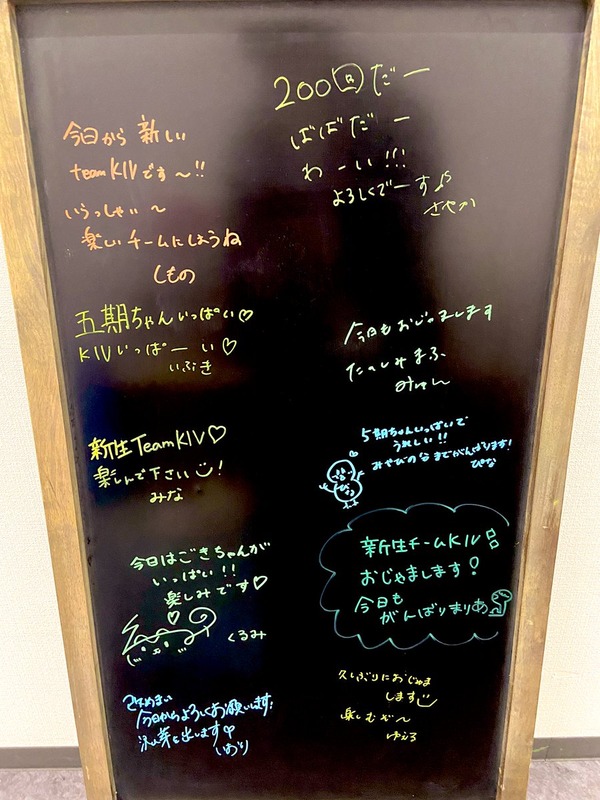 200回だー
ばばだー
わーい!!!
よろしくでーす♪
さやか
今日から 新しい
teamKIVです〜!!
いらっしゃい〜
楽しいチームにしようね
しもの
五期ちゃんいっぱい♡
KIVいっぱーい♡
いぶき
今日もおじゃまします
たのしみまふ
みゅん
新生TeamKIV♡
楽しんで下さい!
みな
5期ちゃんいっぱいで
うれしい!!
みやびの分までがんばります!
ぴな
今日はごきちゃんが
いっぱい!!
楽しみです♡
くるみ
新生チームKIV
おじゃまします!
今日も
がんばりまりあ
今日からよろしくお願いします!
を出します
いおり
久しぶりにおじゃま
します
楽しむぞ〜